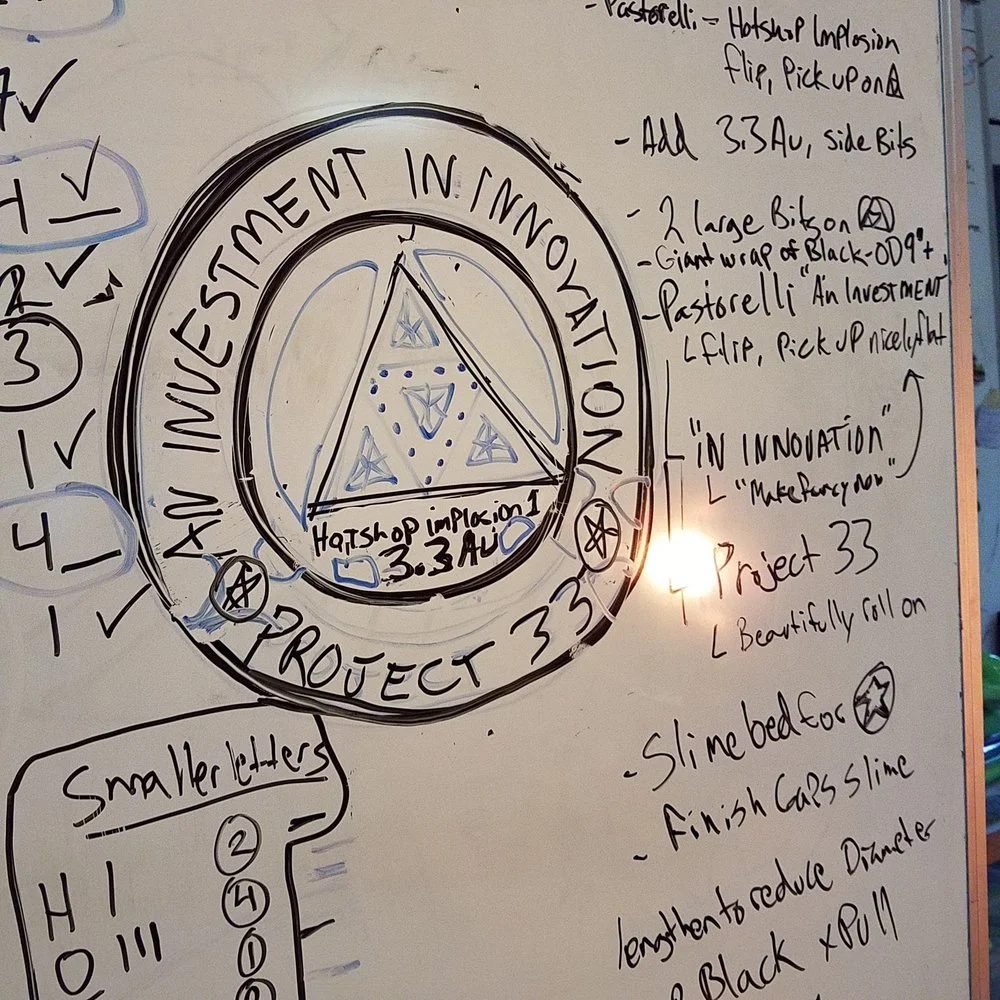 - Pastorelli - Hotshop Implosion
flip, Pick up on
- Add 3.3 Au, side Bits
- 2 large Bits on
- Giant wrap of Black-OD 9"+
- Pastorelli "An Investment
L flip, Pick up nicely, flat
"IN INNOVATION"
L "Make fancy now"
Project 33
L Beautifully roll on
- Slime bed for
- Finish Gaps Slime
lengthen to reduce Diameter
Black xPull
AN INVESTMENT IN INNOVATION
Hotshop implosion 1
3.3 Au
PROJECT 33
4
2
3
1
4
1
Smaller letters
H I 2
O III 4
1